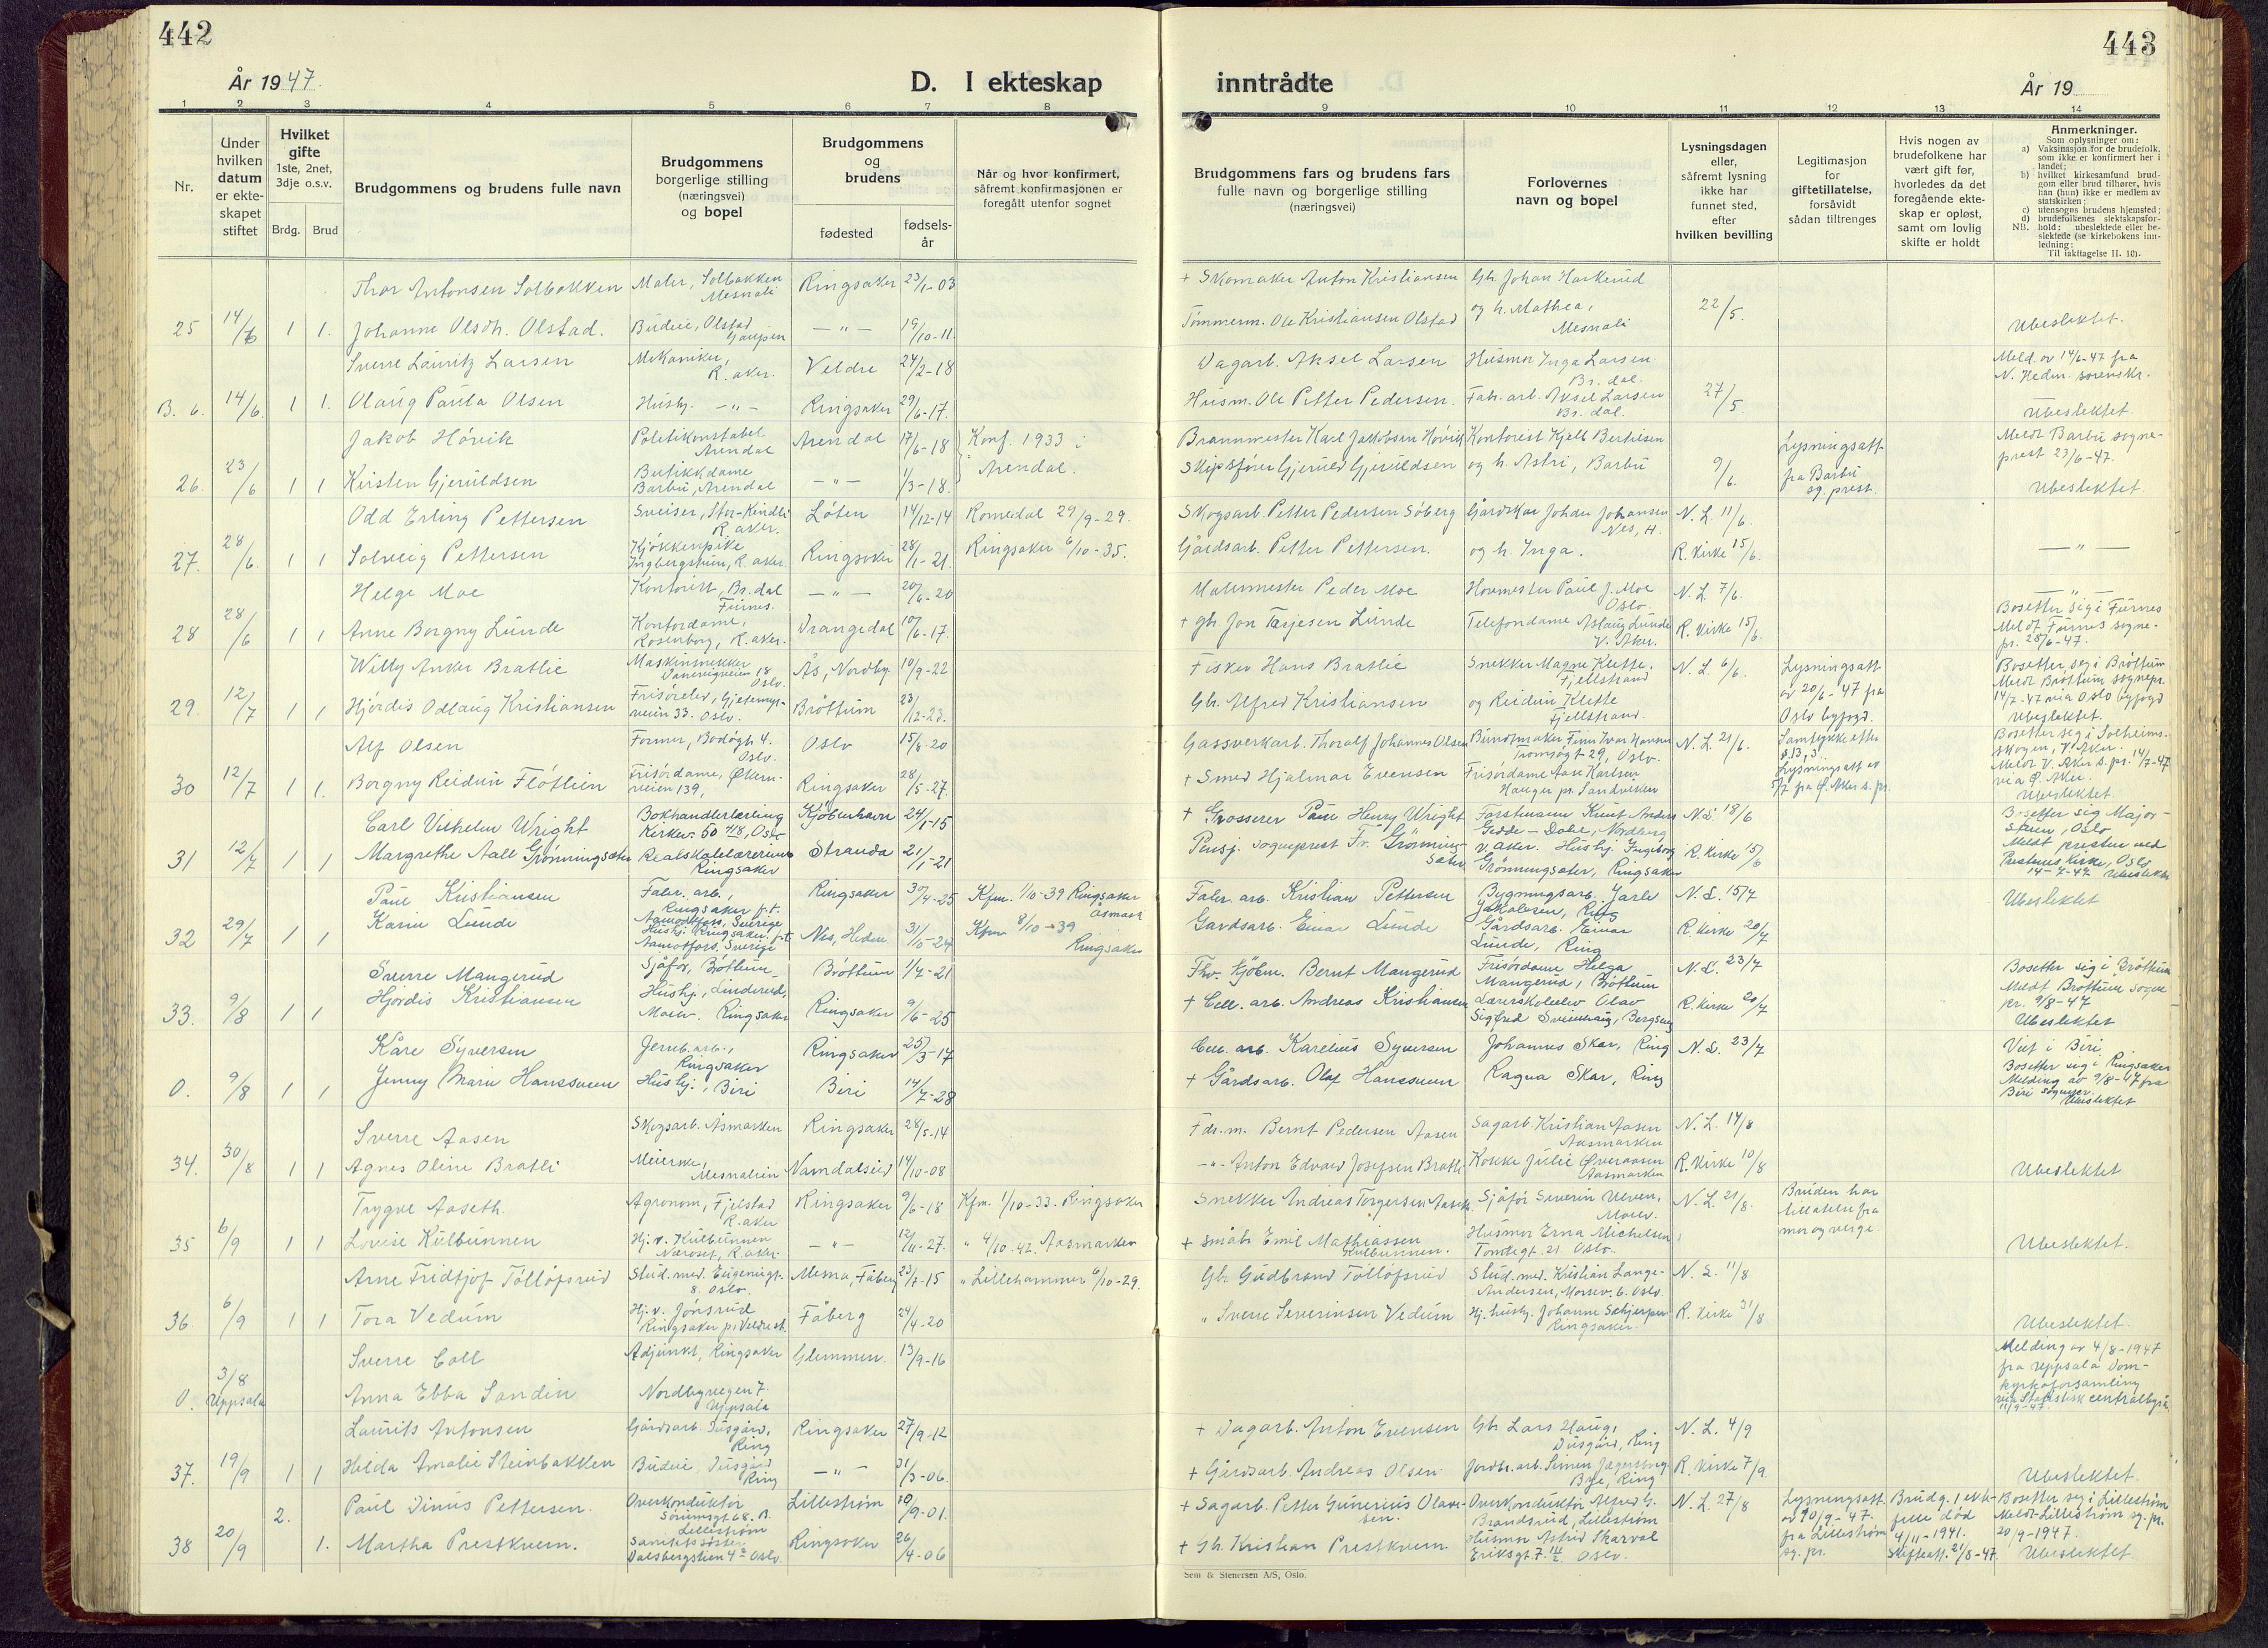 442
År 1947.
D. I ekteskap
1 2 3 4 5 6 7 8
Nr.
Under hvilken datum er ekteskapet stiftet
Hvilket gifte 1ste, 2net, 3dje o.s.v.
Brdg. Brud
Brudgommens og brudens fulle navn
Brudgommens borgerlige stilling (næringsvei) og bopel
Brudgommens og brudens
fødested
fødsels-år
Når og hvor konfirmert, såfremt konfirmasjonen er foregått utenfor sognet
Thor Antonsen Solbakken Maler, Solbakken Mesnali Ringsaker 23/1-03
25 14/6 1 1. Johanne Olsdt. Olstad. Budeie, Olstad Gaupen —"— 19/10-11.
Sverre Lauritz Larsen Mekaniker, R.aker. Veldre 24/2-18
B. 6. 14/6. 1 1. Olaug Paula Olsen Husbg. —"— Ringsaker 29/6-17.
Jakob Hövik Politikonstabel Arendal Arendal 17/6-18 Konf. 1933 i
26. 23/6 1 1 Kirsten Gjeruldsen Butikkdame Barbu, Arendal —"— 1/3-18. Arendal.
Odd Erling Pettersen Sveiser, Stor-Kindli R.aker. Löten 14/12-14 Romedal 29/9-29.
27. 28/6. 1 1 Solveig Pettersen Kjökkenpike Ingbergstuen, R.aker. Ringsaker 28/1-21. Ringsaker 6/10-35.
Helge Moe Kontorist, Br.dal Furnes. —"— 20/6-20
28 28/6 1 1 Anne Borgny Lunde Kontordame, Rosenborg, R.aker. Drangedal 10/6-17.
Willy Anker Bratlie Maskinsnekker 18 Oslo. Ås, Nordby 10/9-22
29. 12/7 1 1 Hjördis Odlaug Kristiansen veien 33. Oslo. Bröttum 23/12-23.
Alf Olsen Former, Bodögt. 4. Oslo. Oslo 15/8-20
30 12/7 1 1. Borgny Reidun Flötlien Frisördame, Økernveien 139, Ringsaker 28/5-27.
Carl Vilhelm Wright Bokhandlerlærling Kirkev. 50 Oslo Kjöbenhavn 24/1-15
31 12/7 1 1 Margrethe Aall Grønningsæter Realskolelærerinne Ringsaker Stranda 21/1-21
Paul Kristiansen Fabr. arb., Ringsaker p.t. Aamotfors, Sverige Ringsaker 30/4-25 Kfm. 1/10-39 Ringsaker Åsmark
32 29/7 1 1 Karin Lunde Hushj. Ringsaker p.t. Aamotfors. Sverige Nes, Hedm. 31/10-24 Kfm 8/10-39 Ringsaker
Sverre Mangerud Sjåför, Bröttum Bröttum 1/7-21
33. 9/8 1 1 Hjördis Kristiansen Hushj., Linderud, Moelv. Ringsaker Ringsaker 9/6-25
Kåre Syversen Jernb.arb., Ringsaker Ringsaker 25/3-17
O. 9/8 1 1 Jenny Marie Hanssveen Hushj., Biri Biri 14/7-28
Sverre Aasen Skogsarb. Åsmarken Ringsaker 28/5-14
34. 30/8 1 1 Agnes Oline Bratli Meierske, Mesnalien Namdalseid 14/10-08
Trygve Aaseth. Agronom, Fjelstad R.aker Ringsaker 9/6-18 Kfm. 1/10-33. Ringsaker
35 6/9 1 1 Lovise Kulbunnen Hj. v. Kulbunnen Næroset, R.aker. —"— 12/4-27. " 4/10-42. Aasmarken
Arne Fridtjof Töllöfsrud Stud. med. Eugeniigt. 8. Oslo. Mesna, Fåberg 23/7-15 " Lillehammer 6/10-29.
36. 6/9 1 1 Tora Vedum Hj. v. Jönsrud Ringsaker pr. Veldre st. Fåberg 24/4-20
Sverre Coll Adjunkt, Ringsaker Glemmen. 13/9-16
O. 3/8 Uppsala Anna Ebba Sandin Nordbyvegen 7. Uppsala
Laurits Antonsen Gårdsarb. Dusgård, Ring Ringsaker 27/9-12
37. 19/9 1 1 Hilda Amalie Steinbakken Budeie, Dusgård Ring —"— 31/3-06.
2. Paul Dinus Pettersen. Overkonduktör Sörumsgt. 68. B. Lilleström Lilleström 10/9-01.
38 20/9 1. Martha Prestkvern. Sanitetssöster Valsbergstien 4 Oslo. Ringsaker 26/4-06
443
inntrådte
År 19
9 10 11 12 13 14
Brudgommens fars og brudens fars fulle navn og borgerlige stilling (næringsvei)
Forlovernes navn og bopel
Lysningsdagen eller, såfremt lysning ikke har funnet sted, efter hvilken bevilling
Legitimasjon for giftetillatelse, forsåvidt sådan tiltrenges
Hvis nogen av brudefolkene har vært gift før, hvorledes da det foregående ekteskap er opløst, samt om lovlig skifte er holdt
Anmerkninger.
Som oplysninger om:
a) Vaksinasjon for de brudefolk, som ikke er konfirmert her i landet;
b) hvilket kirkesamfund brudgom eller brud tilhører, hvis han (hun) ikke er medlem av statskirken;
c) utensogns brudens hjemsted;
d) brudefolkenes slektskapsforhold: ubeslektede eller beslektede (se kirkebokens innledning:
NB.
Til iakttagelse II. 10).
+ Skomaker Anton Kristiansen Gbr. Johan Harkerud
Tömmerm. Ole Kristiansen Olstad og h. Mathea, Mesnali 22/5. Ubeslektet.
Dagarb. Aksel Larsen Husmor Inga Larsen. Br. dal. Meld. av 14/6-47 fra N. Hedm. sorenskr.
Husm. Ole Petter Pedersen. Fabr. arb. Aksel Larsen Br. dal. 27/5 Ubeslektet.
Brannmester Karl Jakobsen Hövik Kontorist Kjell Bertilsen Lysningsatt. Meldt Barbu sogneprest 23/6-47.
Skipsförer Gjeruld Gjeruldsen og h. Astri, Barbu 9/6. fra Barbu sg. prest. Ubeslektet.
Skogsarb. Petter Pedersen Söberg Gårdskar Johan Johansen Nes, H. N. L. 11/6.
Gårdsarb. Petter Pettersen. og h. Inga. R. kirke 15/6. —"—
Malermester Peder Moe Hovmester Paul J. Moe Oslo. N. L. 7/6. Bosetter sig i Furnes
+ gbr. Jon Tarjesen Lunde Telefondame Aslaug Lunde V. Aker. R. kirke 15/6. Meldt Furnes sognepr. 28/6-47.
Fisker Hans Bratlie Snekker Magne Klette, Fjellstrand N. L. 6/6. Lysningsatt. av 20/6-47 fra Bosetter seg i Bröttum Meldt Bröttum sognepr.
Gbr. Alfred Kristiansen og Reidun Klette Fjellstrand. Oslo byfogd. 14/7-47 via Oslo byfogd Ubeslektet.
Gassverkarb. Thoralf Johannes Olsen Buntmaker Finn Ivar Hansen Tromsögt 29, Oslo. N. L. 21/6. Samtykke efter § 13, 3. Bosetter seg i Solheimsskogen, V. Aker.
+ Smed Hjalmar Evensen Frisördame Aase Karlsen Hauger pr. Sandvika Lysningsatt av 5/7 fra Ø. Aker s. pr. Meldt V. Aker s. pr. 14/7-47 via Ø. Aker. Ubeslektet.
+ Grosserer Paul Henry Wright Forstmann Knut Anders Gedde-Dahl, Nordberg N.L. 18/6 Bosetter sig Majorstuen, Oslo
Pensj. sogneprest Fr. Grønningsæter V. Aker. Hushj. Ingeborg Grønningsæter, Ringsaker R. Kirke 15/6 Meldt presten ved Prestenes kirke, Oslo 14-7-47 Ubeslektet
Fabr. arb. Kristian Pettersen Bygningsarb. Jarle Jakobsen, Ring N. L. 15/7 Ubeslektet
Gardsarb. Einar Lunde Gårdsarb. Einar Lunde, Ring R. Kirke 20/7
Fhv. kjöbm. Bernt Mangerud Frisördame Helga Mangerud, Bröttum N. L. 23/7 Bosetter sig i Bröttum
+ Cell. arb. Andreas Kristiansen Lærerskoleelev Olav Sigfred Sveinhaug, Bergseng R. Kirke 20/7 Meldt Bröttum sognepr. 9/8-47 Ubeslektet
Cell. arb. Karelius Syversen Johannes Skar, Ring N. L. 23/7 Viet i Biri
+ Gårdsarb. Olaf Hanssveen Ragna Skar, Ring Bosetter sig i Ringsaker Melding av 9/8-47 fra Biri sognepr. Ubeslektet
Fdr. m. Bernt Pedersen Aasen Sagarb. Kristian Aasen Aasmarken N. L. 14/8
—"— Anton Edvard Josefsen Bratli Kokke Julie Øveraasen Aasmarken R. Kirke 10/8 Ubeslektet
Snekker Andreas Torgersen Aaseth. Sjåför Severin Ulven, Moelv. N. L. 21/8. Bruden har tillatelse fra
+ småbr. Emil Mathiassen Kulbunnen. Husmor Erna Michelsen Tomtegt. 21. Oslo. mor og verge. Ubeslektet.
Gbr. Gudbrand Töllöfsrud Stud. med. Kristian Lange-Andersen, Oslo. N. L. 11/8
" Sverre Severinsen Vedum Hj. husbg. Johanne Schjerpen Ringsaker. R. Kirke 31/8 Ubeslektet.
Melding av 4/8-1947 fra Uppsala Domkyrkoforsamling via Statistisk centralbyrå 11/9-47.
+ Dagarb. Anton Evensen Gbr. Lars Haug, Dusgård, Ring N. L. 4/9
+ Gårdsarb. Andreas Olsen. Jordbr.arb. Simen Jægersborg Bye, Ring R. Kirke 7/9 Ubeslektet.
+ Sagarb. Petter Gunerius Olavsen. Overkonduktör Alfred G. Brandsrud, Lilleström N. L. 27/8 Lysningsatt. av 10/9-47. Brudg. 1 ektefelle död Bosetter seg i Lilleström Meldt Lilleström sg. pr.
+ Gbr. Kristian Prestkvern Husmor Astrid Skarval Eriksgt. 7. Oslo. fra Lilleström sg. pr. 4/11-1941. Skifteatt. 21/8-47. 20/9-1947. Ubeslektet.
Sem & Stenersen A/S, Oslo.